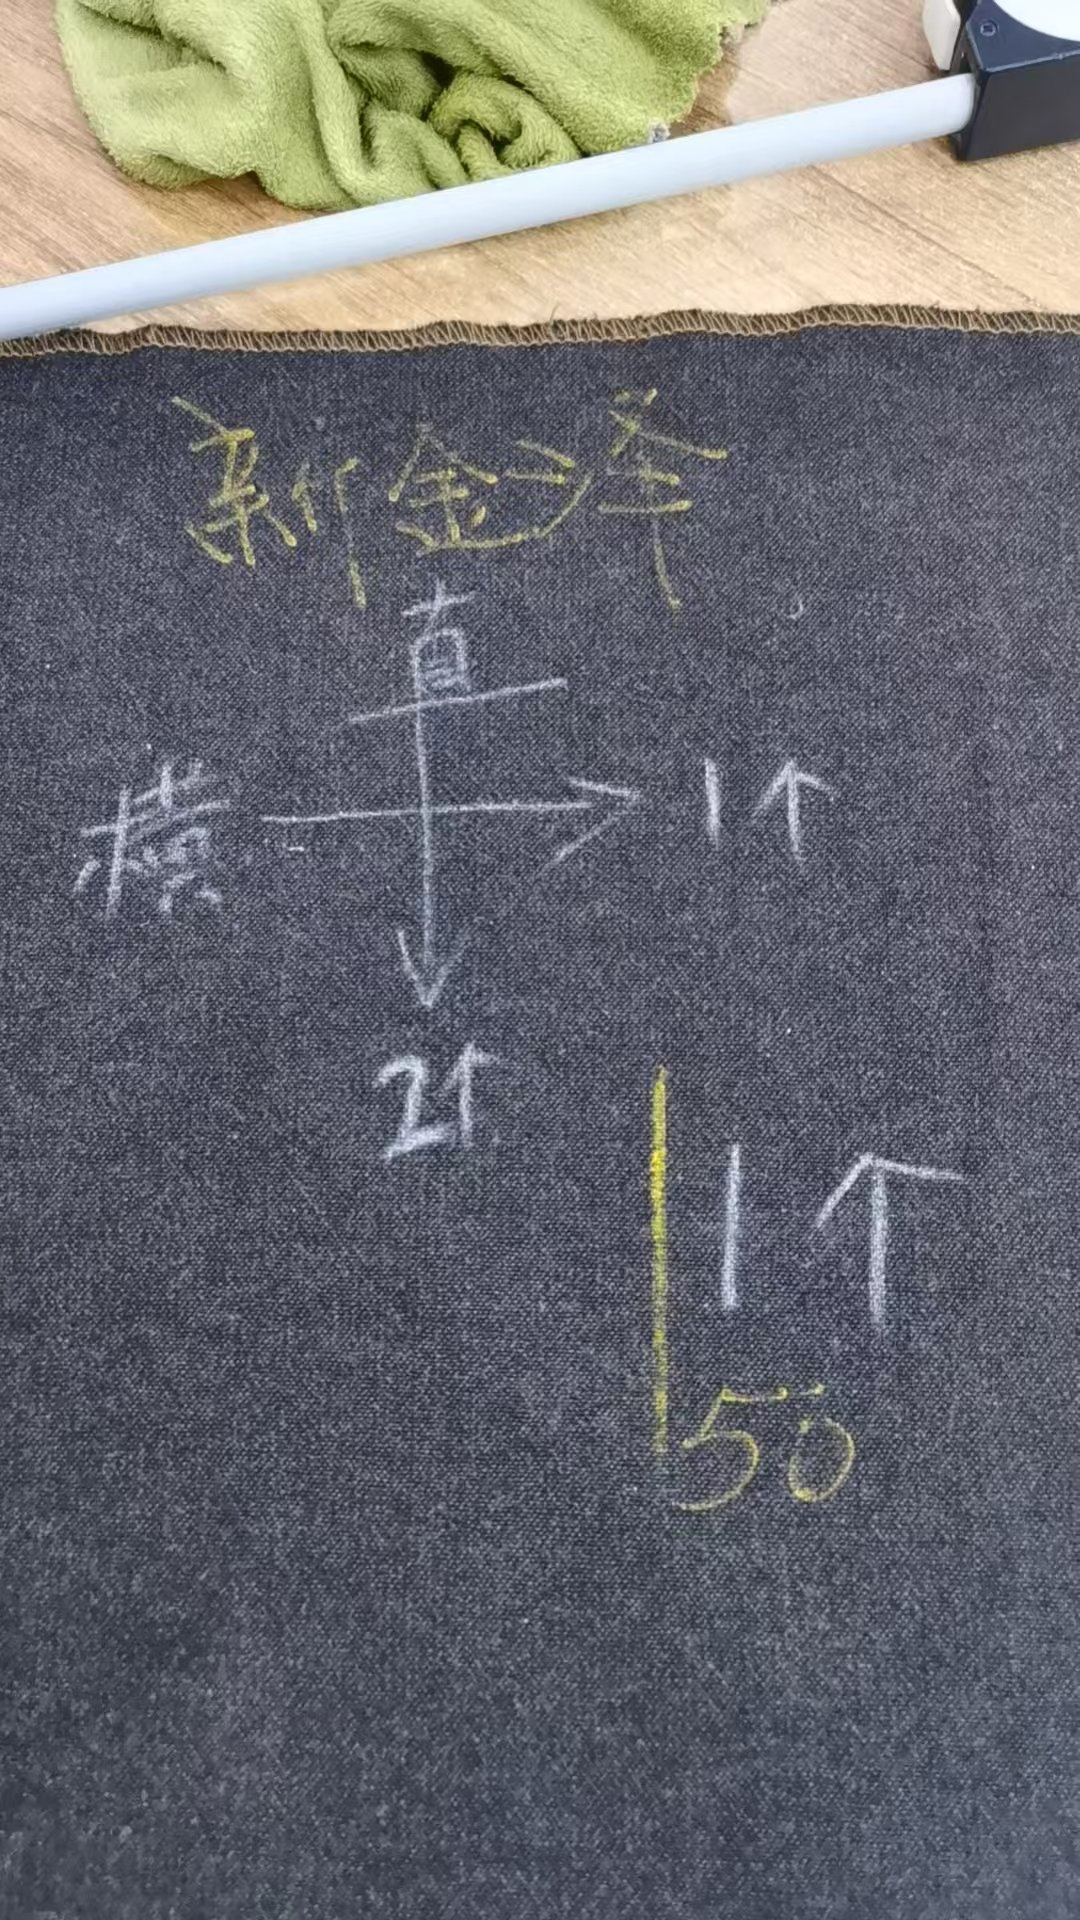 新金泽
直
横 1个
2个
1个
50